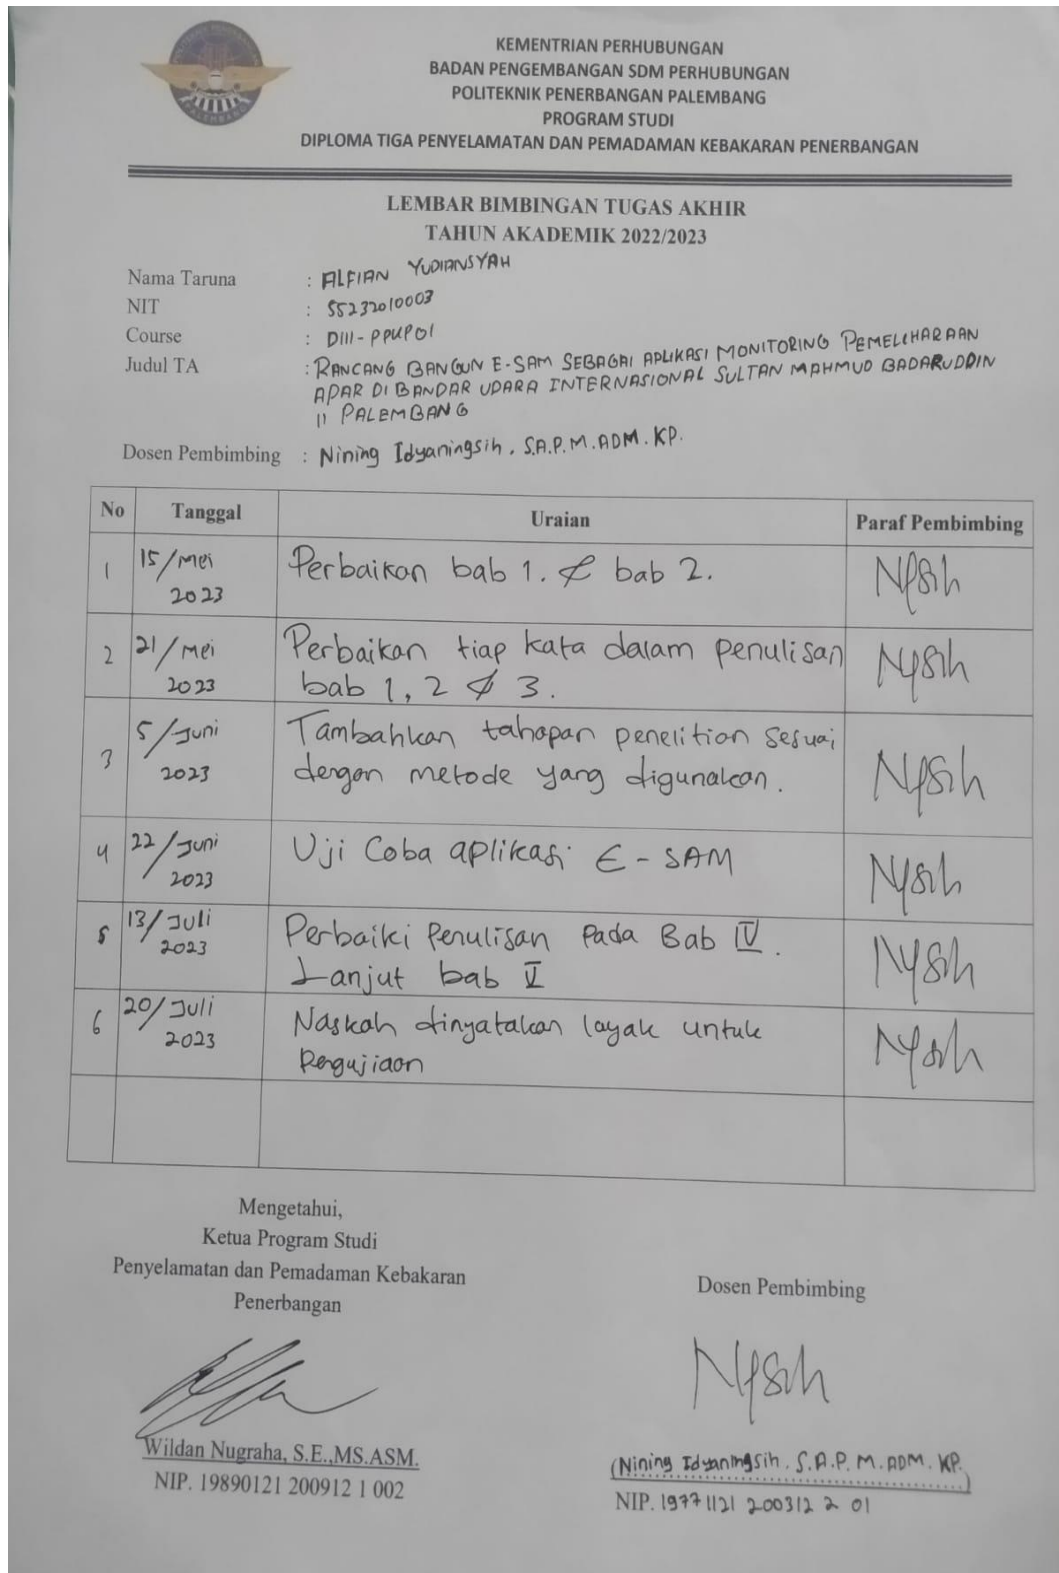 KEMENTRIAN PERHUBUNGAN
BADAN PENGEMBANGAN SDM PERHUBUNGAN
POLITEKNIK PENERBANGAN PALEMBANG
PROGRAM STUDI
DIPLOMA TIGA PENYELAMATAN DAN PEMADAMAN KEBAKARAN PENERBANGAN
LEMBAR BIMBINGAN TUGAS AKHIR
TAHUN AKADEMIK 2022/2023
Nama Taruna : ALFIAN YUDIANSYAH
NIT : 55232010003
Course : DIII-PPKP01
Judul TA : RANCANG BANGUN E-SAM SEBAGAI APLIKASI MONITORING PEMELIHARAAN
APAR DI BANDAR UDARA INTERNASIONAL SULTAN MAHMUD BADARUDDIN
II PALEMBANG
Dosen Pembimbing : Nining Idyaningsih, S.A.P.M.ADM.KP.
No Tanggal Uraian Paraf Pembimbing
1 15/Mei 2023 Perbaikan bab 1. & bab 2.
2 21/Mei 2023 Perbaikan tiap kata dalam penulisan
bab 1, 2 & 3.
3 5/Juni 2023 Tambahkan tahapan penelitian sesuai
dengan metode yang digunakan.
4 22/Juni 2023 Uji Coba aplikasi E-SAM
5 13/Juli 2023 Perbaiki Penulisan Pada Bab IV.
Lanjut bab V
6 20/Juli 2023 Naskah dinyatakan layak untuk
Pengujiaan
Mengetahui,
Ketua Program Studi
Penyelamatan dan Pemadaman Kebakaran
Penerbangan
Wildan Nugraha, S.E.,MS.ASM.
NIP. 19890121 200912 1 002
Dosen Pembimbing
(Nining Idyaningsih. S.A.P.M.ADM.KP.)
NIP. 19771121 200312 2 01